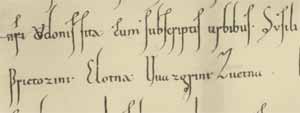 nri Udonis sita cum subscriptis urbibus. Susili
Prietorine Elotna Huargrine Zuetna